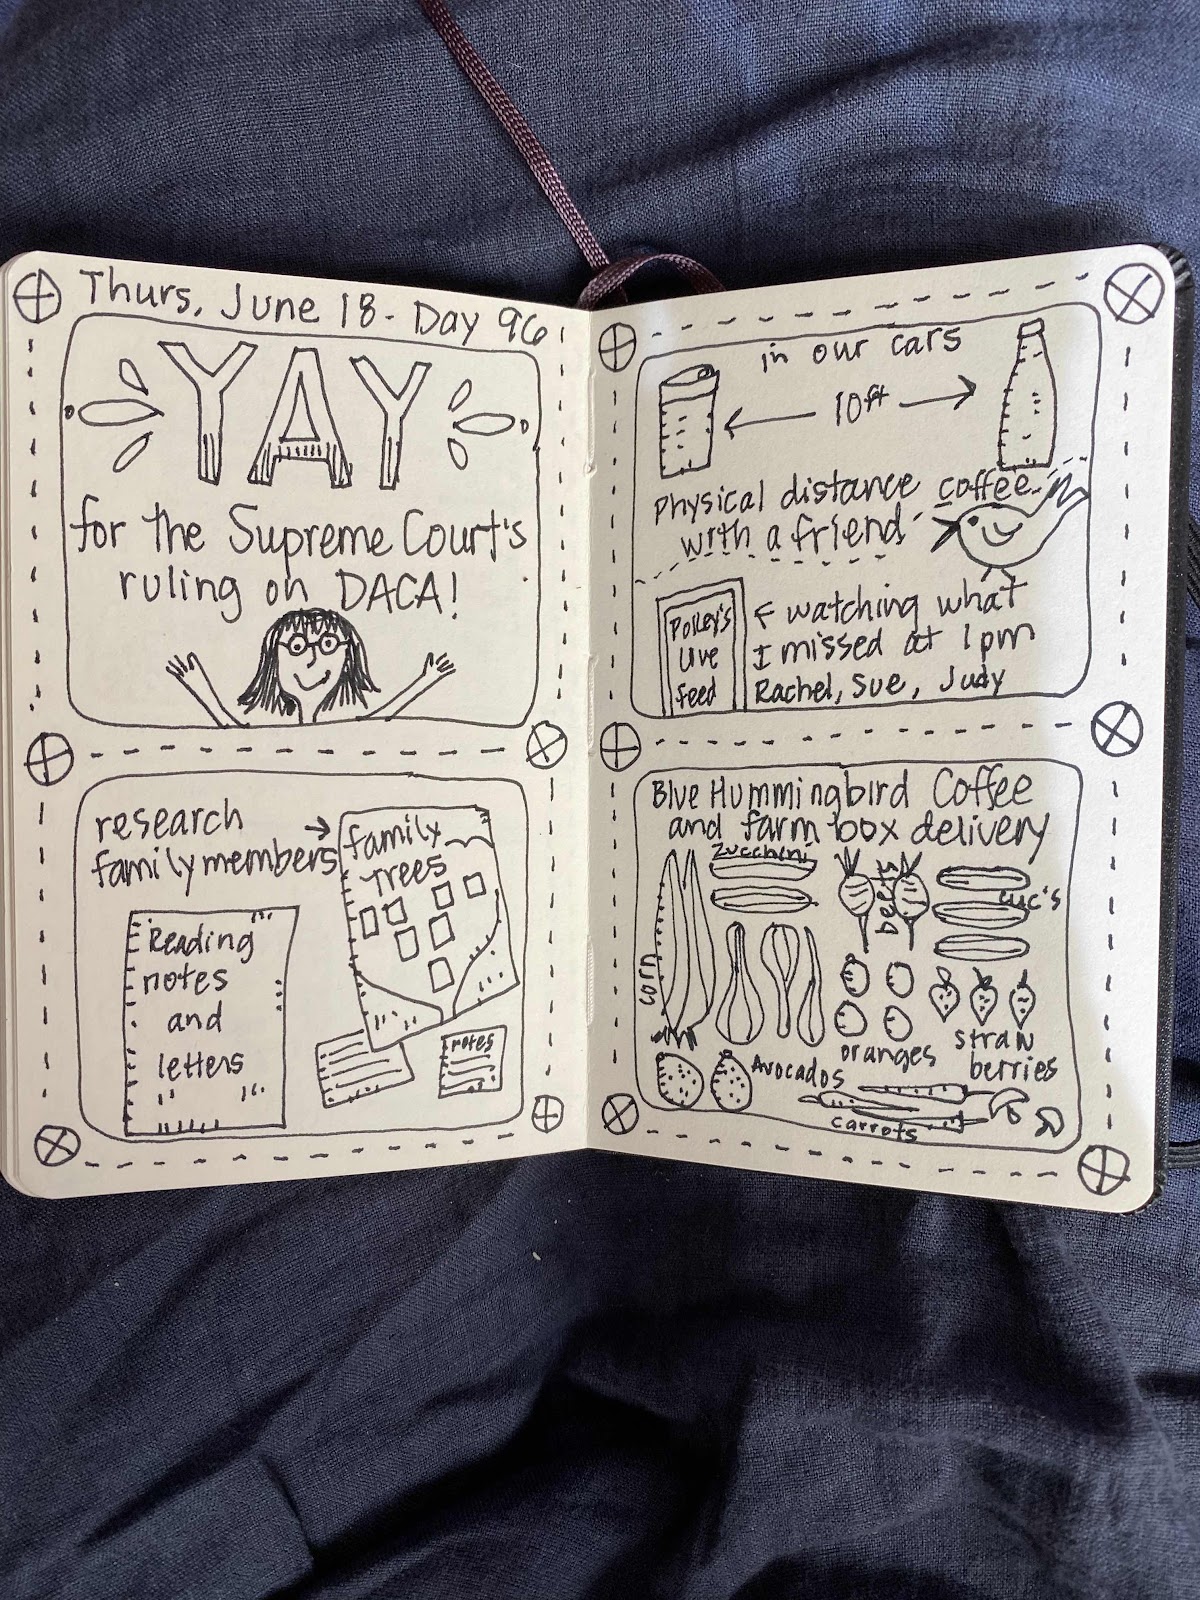 Thurs, June 18 - Day 96
YAY
for the Supreme Court's
ruling on DACA!
research
family members
family
Trees
Reading
notes
and
letters
notes
in our cars
10ft
Physical distance coffee
with a friend
live
feed
watching what
I missed at 1pm
Rachel, Sue, Judy
Blue Hummingbird Coffee
and farm box delivery
zucchini
Beets
cuc's
corn
oranges
straw
berries
Avocados
carrots